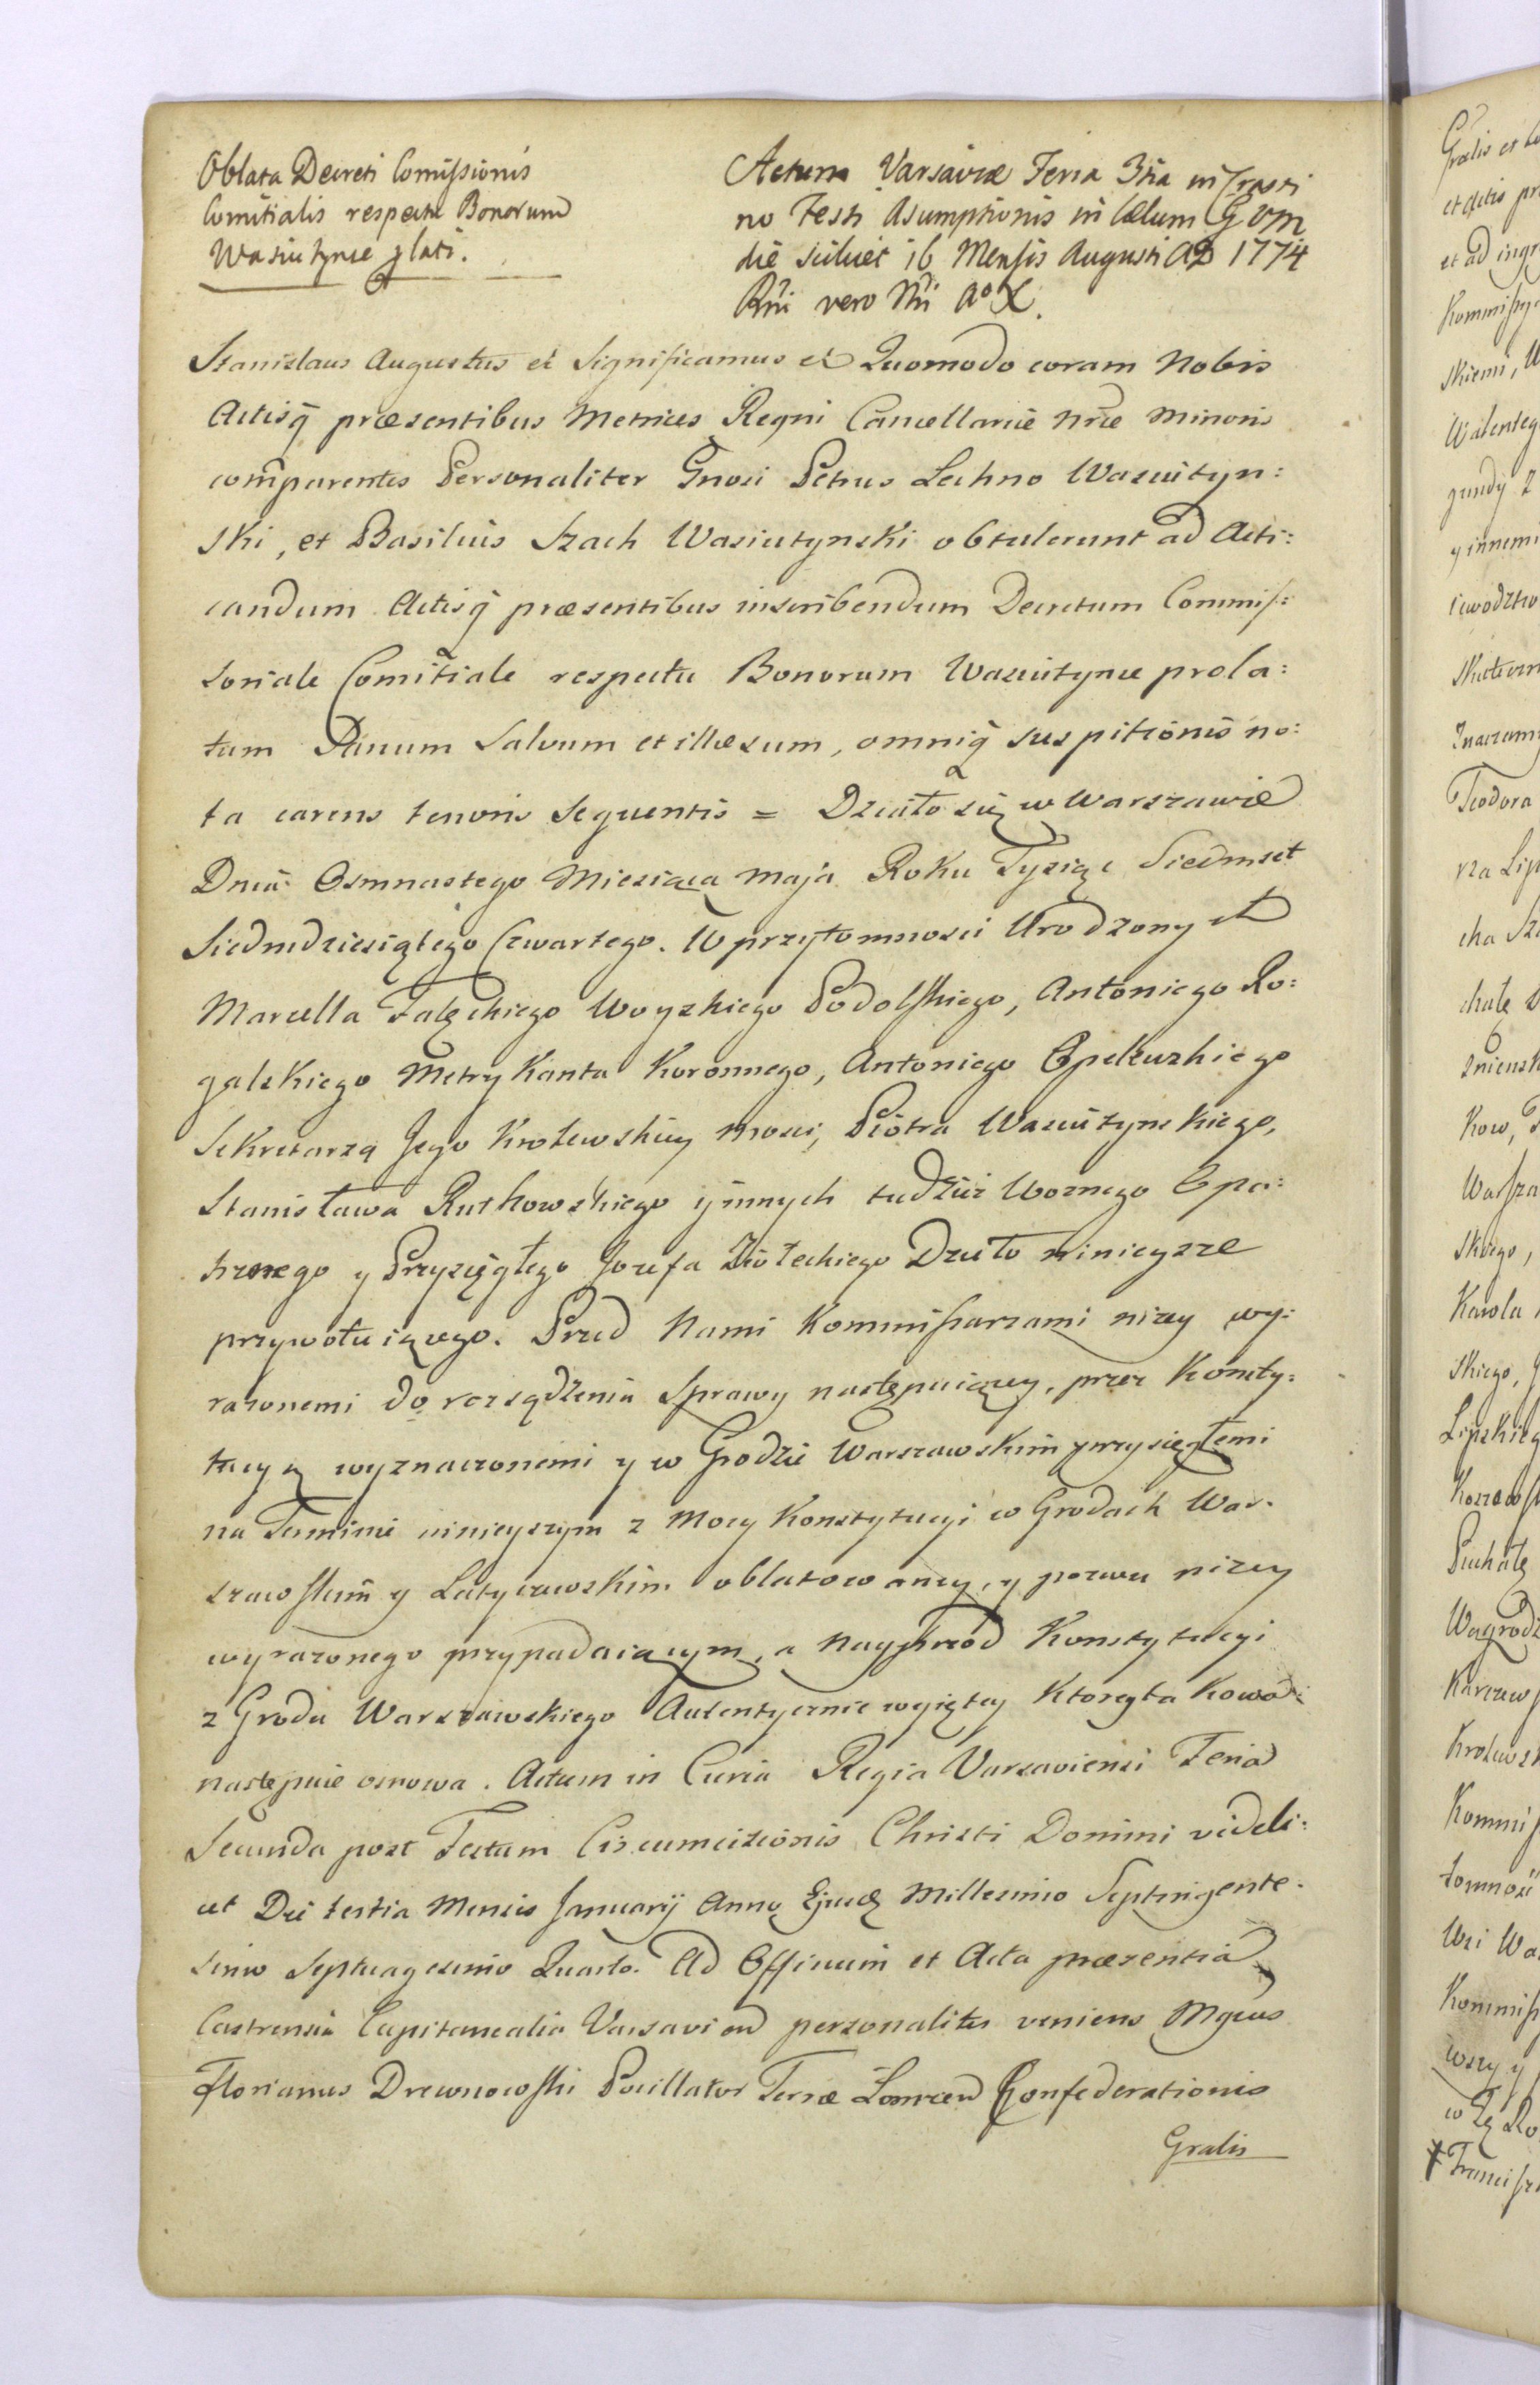 Oblata Decreti Comissionis
Comitialis respectu Bonorum
Wasiutynce plati.
Actum Varsaviæ Feria 3tia in Crasti
no Festi Asumptionis in Cælum G VM
die scilicet 16 Mensis Augusti AD 1774
Rni vero Nri Aº X.
Stanislaus Augustus et Significamus et Quomodo coram Nobis
Actisq præsentibus Metrices Regni Cancellariæ Nræ Minoris
comparentes Personaliter Gnosi Petrus Lechno Wasiutyn:
ski, et Basilius Szach Wasiutynski obtulerunt ad Acti:
candum Actisq præsentibus inscribendum Decretum Commis:
soriale Comitiale respectu Bonorum Wasiutynce prola:
tum Sanum Salvum et illæsum, omniq suspitionis no:
ta carens tenoris Sequentis = Działo się w Warszawie
Dnia Osmnastego Miesiąca Maja Roku Tysiąc Siedmset
Siedmdziesiątego Czwartego. W przytomnosci Urodzonych
Marcella Załęckiego Woyskiego Podolskiego, Antoniego Ro:
galskiego Metrykanta Koronnego, Antoniego Opeltuskiego
Sekretarza Jego Krolewskiey Mosci, Piotra Wasiutynskiego,
Stanisława Rutkowskiego yinnych tudziez Woznego Opa:
trznego y Przysięgłego Jozefa Ziołeckiego Dzieło ninieysze
przywołuiącego. Przed Nami Kommissarzami nizey wy:
razonemi do rozsądzenia Sprawy następuiącey, przez Konsty:
tucyą wyznaczonemi y w Grodzie Warszawskim przysięgłemi
na Terminie ninieyszym z Mocy Konstytucyi w Grodach War:
szawskim y Latyczewskim oblatowaney, y pozwu nizey
wyrazonego przypadaiącym, a Nayprzod Konstytucyi
z Grodu Warszawskiego Autentycznie wyiętey Ktorey takowa
następuie osnowa. Actum in Curia Regia Varsaviensi Feria
Secunda post Festum Circumcisionis Christi Domini videli:
cet Die tertia Mensis Januarij Anno Ejusd Millesimo Septingente:
simo Septuagesimo Quarto. Ad Officium et Acta præsentia
Castrensia Capitanealia Varsavien personaliter veniens Mgcus
Florianus Drewnowski Pocillator Terræ Lomzen Confederationis
Gralis